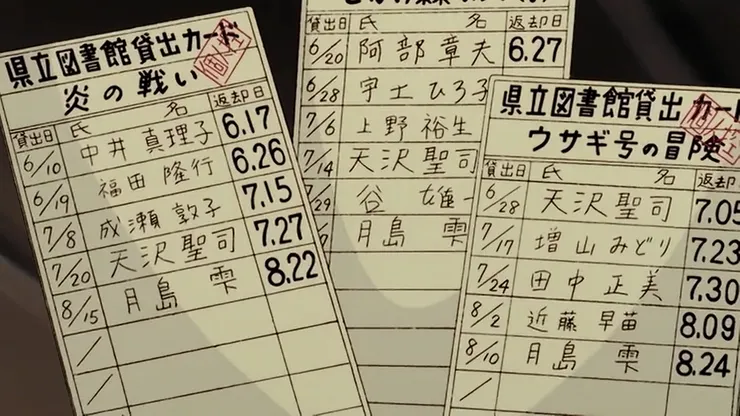 県立図書館貸出カード
炎の戦い
貸出日 氏 名 返却日
6/10 中井 真理子 6.17
6/19 福田 隆行 6.26
7/8 成瀬 敦子 7.15
7/20 天沢聖司 7.27
8/15 月島 雫 8.22
/
/
貸出日 氏 名 返却日
6/20 阿部章夫 6.27
6/28 宇土 ひろ子
7/6 上野 裕生
7/14 天沢聖司
/29 谷 雄一
月島 雫
県立図書館貸出カード
ウサギ号の冒険
貸出日 氏 名 返却
6/28 天沢聖司 7.05
7/17 増山 みどり 7.23
7/24 田中 正美 7.30
8/2 近藤 早苗 8.09
8/10 月島 雫 8.24
/